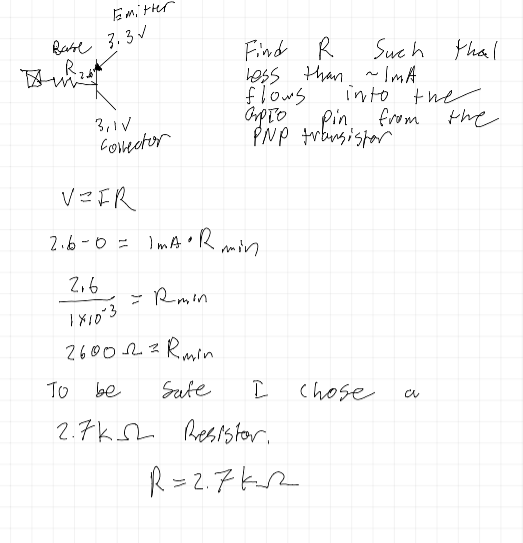 Emitter
3.3V
Base
R
2.6
3.1V
Collector
Find R Such that
less than ~1mA
flows into the
GPIO pin from the
PNP transistor
V=IR
2.6-0 = 1mA·R min
2.6
1×10^-3 = Rmin
2600Ω = Rmin
To be safe I chose a
2.7kΩ Resistor.
R=2.7kΩ